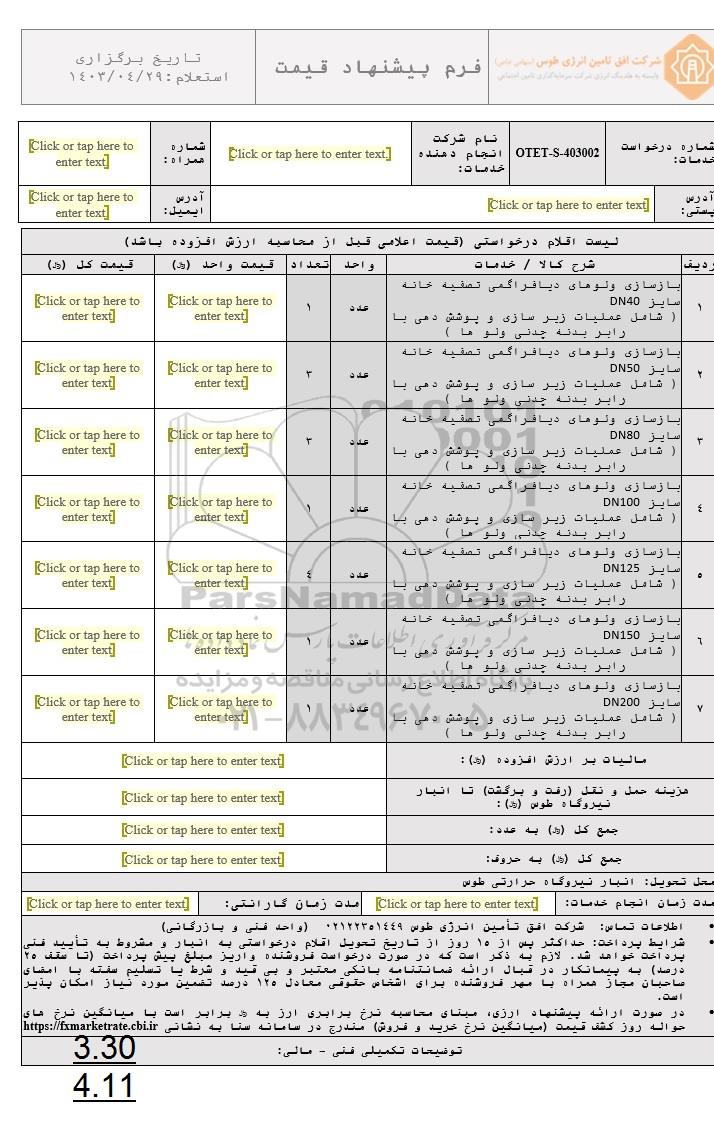 شرکت افق تامین انرژی طوس (سهامی خاص)
وابسته به هلدینگ انرژی شرکت سرمایه‌گذاری تامین اجتماعی
فرم پیشنهاد قیمت
تاریخ برگزاری
استعلام: ۱۴۰۳/۰۴/۲۹
شماره درخواست خدمات:
OTET-S-403002
نام شرکت انجام دهنده خدمات:
Click or tap here to enter text.
شماره همراه:
Click or tap here to enter text.
آدرس پستی:
Click or tap here to enter text.
آدرس ایمیل:
Click or tap here to enter text.
لیست اقلام درخواستی (قیمت اعلامی قبل از محاسبه ارزش افزوده باشد)
ردیف شرح کالا / خدمات واحد تعداد قیمت واحد (﷼) قیمت کل (﷼)
۱ بازسازی ولوهای دیافراگمی تصفیه خانه
سایز DN40
( شامل عملیات زیر سازی و پوشش دهی با
رابر بدنه چدنی ولو ها )
عدد ۱ Click or tap here to enter text. Click or tap here to enter text.
۲ بازسازی ولوهای دیافراگمی تصفیه خانه
سایز DN50
( شامل عملیات زیر سازی و پوشش دهی با
رابر بدنه چدنی ولو ها )
عدد ۳ Click or tap here to enter text. Click or tap here to enter text.
۳ بازسازی ولوهای دیافراگمی تصفیه خانه
سایز DN80
( شامل عملیات زیر سازی و پوشش دهی با
رابر بدنه چدنی ولو ها )
عدد ۳ Click or tap here to enter text. Click or tap here to enter text.
٤ بازسازی ولوهای دیافراگمی تصفیه خانه
سایز DN100
( شامل عملیات زیر سازی و پوشش دهی با
رابر بدنه چدنی ولو ها )
عدد ۱ Click or tap here to enter text. Click or tap here to enter text.
٥ بازسازی ولوهای دیافراگمی تصفیه خانه
سایز DN125
( شامل عملیات زیر سازی و پوشش دهی با
رابر بدنه چدنی ولو ها )
عدد ٤ Click or tap here to enter text. Click or tap here to enter text.
٦ بازسازی ولوهای دیافراگمی تصفیه خانه
سایز DN150
( شامل عملیات زیر سازی و پوشش دهی با
رابر بدنه چدنی ولو ها )
عدد ۱ Click or tap here to enter text. Click or tap here to enter text.
۷ بازسازی ولوهای دیافراگمی تصفیه خانه
سایز DN200
( شامل عملیات زیر سازی و پوشش دهی با
رابر بدنه چدنی ولو ها )
عدد ۱ Click or tap here to enter text. Click or tap here to enter text.
مالیات بر ارزش افزوده (﷼): Click or tap here to enter text.
هزینه حمل و نقل (رفت و برگشت) تا انبار
نیروگاه طوس (﷼): Click or tap here to enter text.
جمع کل (﷼) به عدد: Click or tap here to enter text.
جمع کل (﷼) به حروف: Click or tap here to enter text.
محل تحویل: انبار نیروگاه حرارتی طوس
مدت زمان انجام خدمات: Click or tap here to enter text. مدت زمان گارانتی: Click or tap here to enter text.
• اطلاعات تماس: شرکت افق تأمین انرژی طوس ۰۲۱۲۲۳۵۱٤٤۹ (واحد فنی و بازرگانی)
• شرایط پرداخت: حداکثر پس از ۱۵ روز از تاریخ تحویل اقلام درخواستی به انبار و مشروط به تأیید فنی
پرداخت خواهد شد. لازم به ذکر است که در صورت درخواست فروشنده واریز مبلغ پیش پرداخت (تا سقف ۲۵
درصد) به پیمانکار در قبال ارائه ضمانتنامه بانکی معتبر و بی قید و شرط یا تسلیم سفته با امضای
صاحبان مجاز همراه با مهر فروشنده برای اشخاص حقوقی معادل ۱۲۵ درصد تضمین مورد نیاز امکان پذیر
است.
• در صورت ارائه پیشنهاد ارزی، مبنای محاسبه نرخ برابری ارز به ﷼ برابر است با میانگین نرخ های
حواله روز کشف قیمت (میانگین نرخ خرید و فروش) مندرج در سامانه سنا به نشانی https://fxmarketrate.cbi.ir
توضیحات تکمیلی فنی - مالی:
3.30
4.11
ParsNamadData
مرکز فرآوری اطلاعات پارس نماد داده ها
پایگاه اطلاع رسانی مناقصه و مزایده
۰۲۱-۸۸۳٤۹٦۷۰-۵